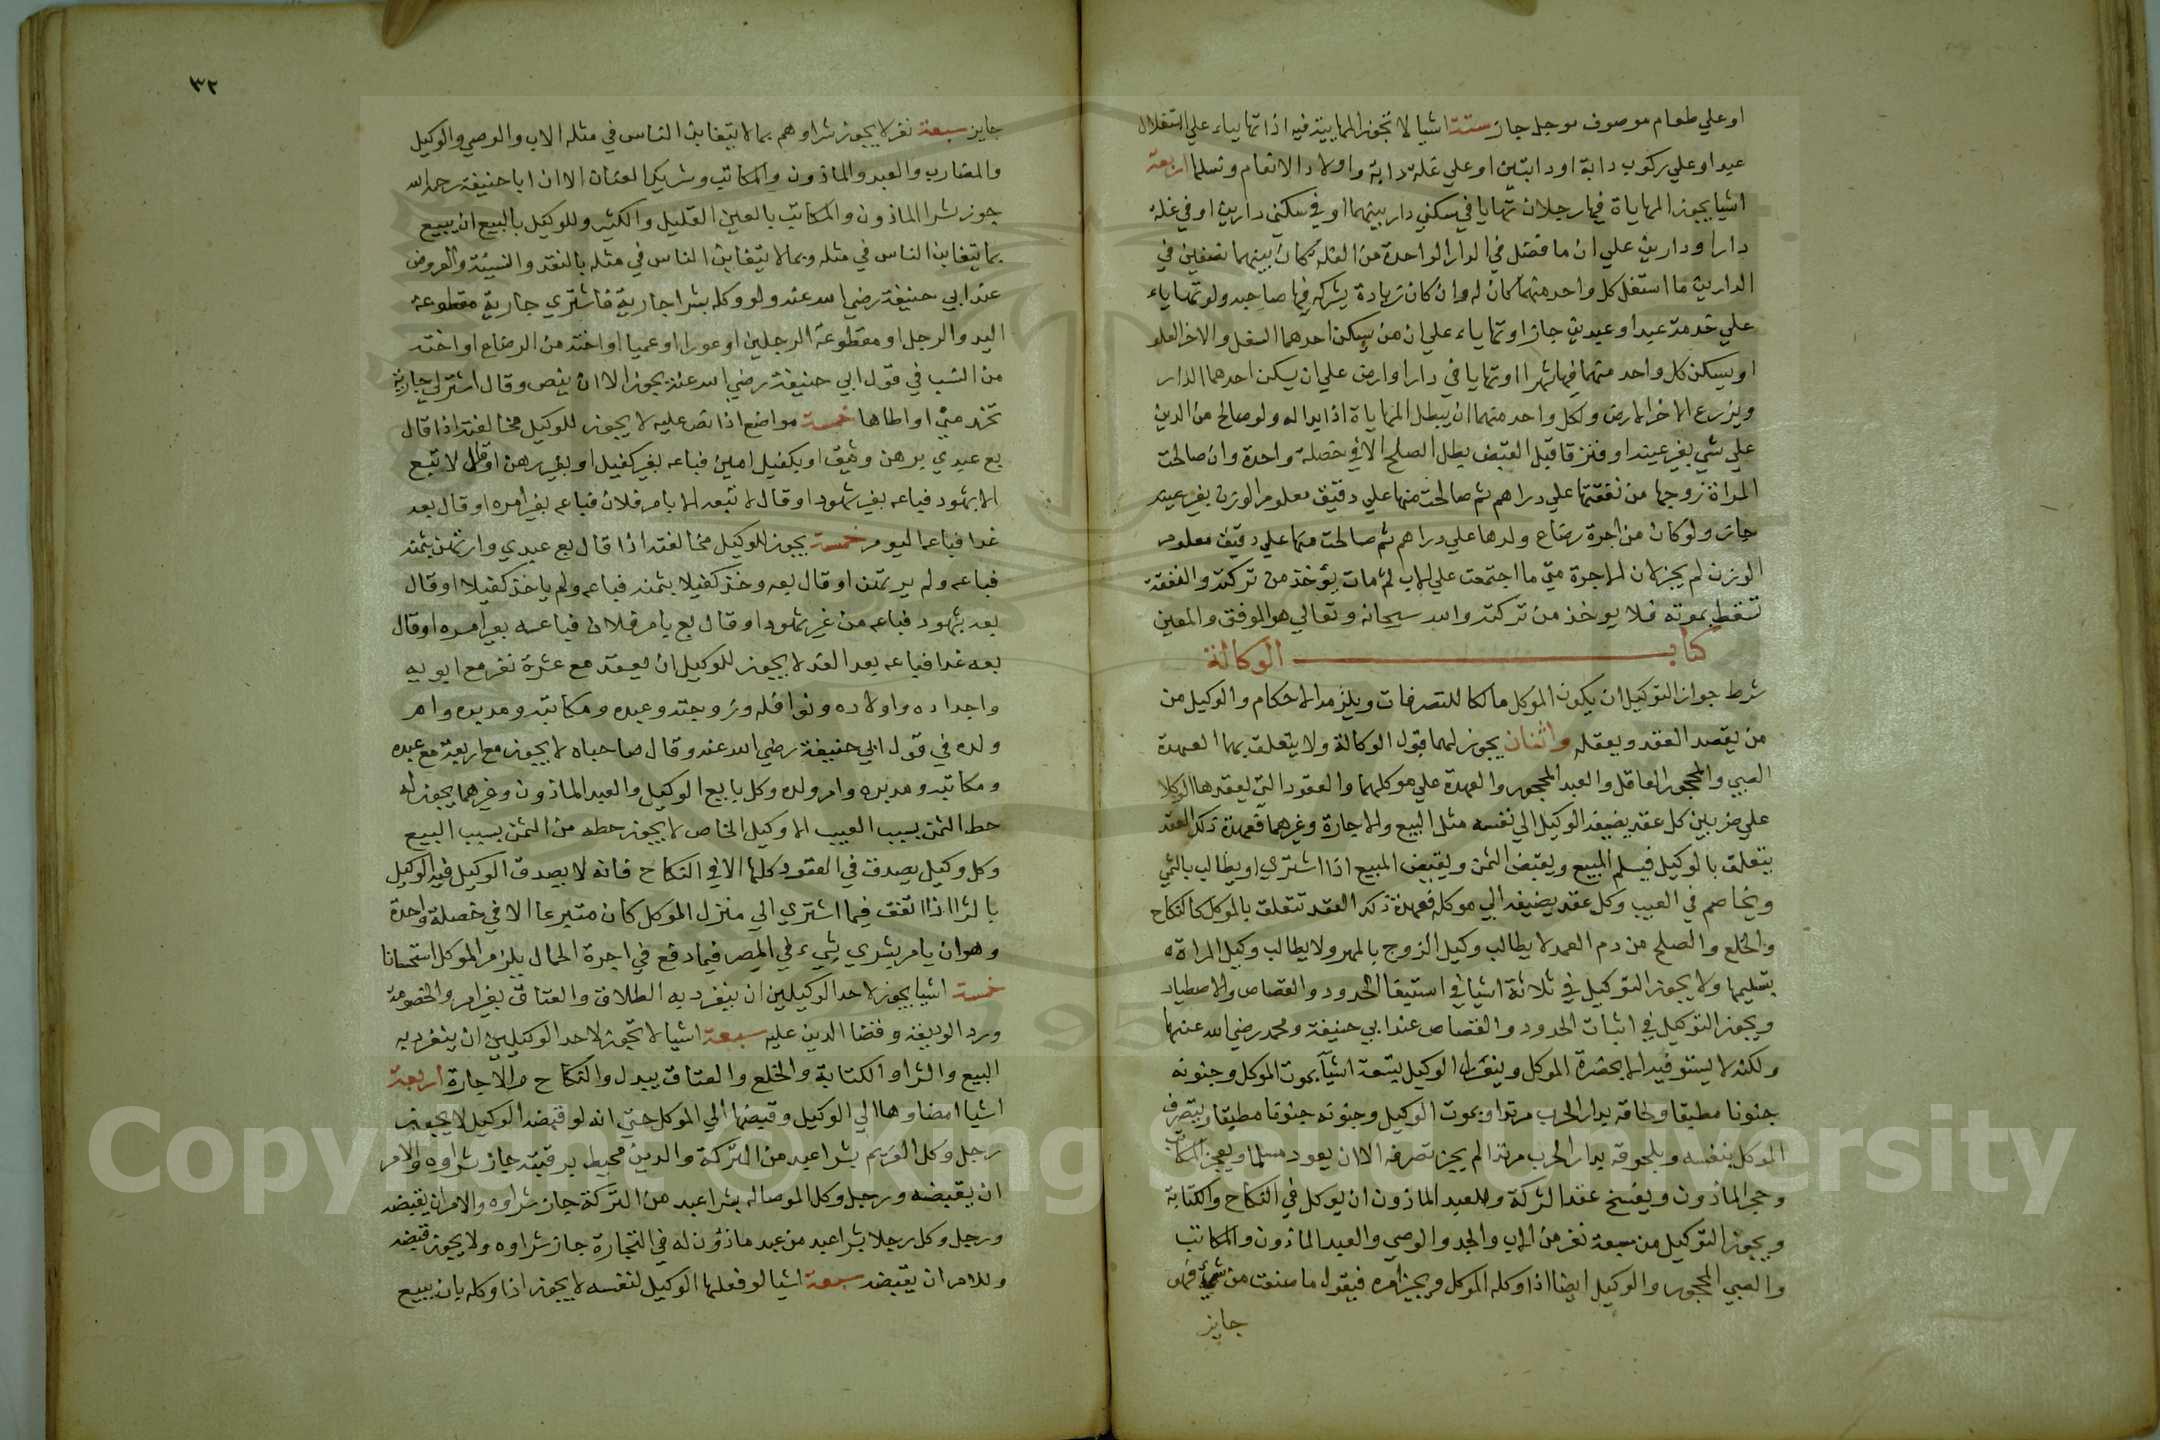 او علي طعام موصوف موجل جاز ستة اشيا لا تجوز المهاياة فيه اذا تهاياء علي استغلال
عبد او علي ركوب دابة او دابتين او علي غلة دابة واولاد الانعام ونسلها اربعة
اشيا يجوز المهاياة فيها رجلان تهايا في سكني دار بينهما او في سكني دارين او في غلة
دار او دارين علي ان ما فضل في الدار الواحدة من الغلة كان بينهما نصفين في
الدارين ما استغل كل واحد منهما كان له وان كان زيادة يشركه فيها صاحبه ولو تهاياء
علي خدمة عبد او عبدين جاز او تهاياء علي ان من يسكن احدهما السفل والاخر العلو
او يسكن كل واحد منهما فيها شهرا او تهايا في دار او ارض علي ان يسكن احدهما الدار
ويزرع الاخر الارض ولكل واحد منهما ان يبطل المهاياة اذا بدا له ولو صالح من الدين
علي شي بغير عينه او فترقا قبل القبض بطل الصلح الا في خصلة واحدة وان صالحت
المراة زوجها من نفقتها علي دراهم ثم صالحت منها علي دقيق معلوم الوزن بغير عينه
جاز ولو كان من اجرة رضاع ولدها علي دراهم ثم صالحت منها علي دقيق معلوم
الوزن لم يجز لان الاجرة متي ما اجتمعت علي الاب ثم مات يؤخذ من تركته والنفقة
تسقط بموته فلا يوخذ من تركته والله سبحانه وتعالي هو الموفق والمعين
كتاب الوكالة
شرط جواز التوكيل ان يكون الموكل مالكا للتصرفات ويلزمه الاحكام والوكيل من
من يقصد العقد ويعقله واثنان يجوز لهما قبول الوكالة ولا يتعلق بهما العهدة
الصبي والمحجور العاقل والعبد المحجور والعهدة علي موكلهما والعقود التي يعقدها الوكلا
علي ضربين كل عقد يضيفه الوكيل الي نفسه مثل البيع والاجارة وغيرهما فعهدة ذلك العقد
يتعلق بالوكيل فيسلم المبيع ويقبض الثمن ويقبض المبيع اذا اشتري او يطالب بالثمن
ويخاصم في العيب وكل عقد يضيفه الي موكله فعهدة ذلك العقد تتعلق بالموكل كالنكاح
والخلع والصلح من دم العمد لا يطالب وكيل الزوج بالمهر ولا يطالب وكيل المراة
بتسليمها ولا يجوز التوكيل في ثلاثة اشيا في استيفا الحدود والقصاص والاصطياد
ويجوز التوكيل في اثبات الحدود والقصاص عند ابي حنيفة ومحمد رضي الله عنهما
ولكنه لا يستوفيه الا بحضرة الموكل وينعزل الوكيل بتسعة اشيآ بموت الموكل وجنونه
جنونا مطبقا ولحاقه بدار الحرب مرتدا وبموت الوكيل وجنونه جنونا مطبقا وبتصرف
الموكل بنفسه وبلحوقه بدار الحرب مرتدا لم يجز تصرفه الا ان يعود مسلما وبعجز المكاتب
وحجر الماذون وبفسخ عقد الشركة وللعبد الماذون ان يوكل في النكاح والكتابة
ويجوز التوكيل من سبعة نفر من الاب والجد والوصي والعبد الماذون والمكاتب
والصبي المحجور والوكيل ايضا اذا وكله الموكل ويجيز امره فيقول ما صنعت من شيء فهو
جايز
٣٢
جايز سبعة نفر لا يجوز شراوهم بما لا يتغابن الناس في مثله الاب والوصي والوكيل
والمضارب والعبد والماذون والمكاتب وشريك العنان الا ان ابا حنيفة رحمه الله
جوز شرا الماذون والمكاتب بالعين القليل والكثير وللوكيل بالبيع ان يبيع
بما يتغابن الناس في مثله وبما لا يتغابن الناس في مثله بالنقد والنسيئة والعروض
عند ابي حنيفة رضي الله عنه ولو وكله بشرا جارية فاشتري جارية مقطوعة
اليد والرجل او مقطوعة الرجلين او عورا او عميا او اخته من الرضاع او اخته
من النسب في قول ابي حنيفة رضي الله عنه يجوز الا ان ينص وقال اشتر لي جارية
تخدمني او اطاها خمسة مواضع اذا نص عليه لا يجوز للوكيل مخالفته اذا قال
بع عبدي برهن وثيق او بكفيل امين فباعه بغير كفيل او بغير رهن او قال لا تبع
الا بشهود فباعه بغير شهود او قال لا تبعه الا بامر فلان فباعه بغير امره او قال بعه
غدا فباعه اليوم خمسة يجوز للوكيل مخالفته اذا قال بع عبدي وارتهن بثمنه
فباعه ولم يرتهن او قال بعه وخذ كفيلا بثمنه فباعه ولم ياخذ كفيلا او قال
بعه بشهود فباعه من غير شهود او قال بع بامر فلان فباعه بغير امره او قال
بعه غدا فباعه بعد الغد لا يجوز للوكيل ان يعقد مع عشرة نفر مع ابويه
واجداده واولاده ونوافله وزوجته وعبده ومكاتبه ومدبره وام
ولده في قول ابي حنيفة رضي الله عنه وقال صاحباه لا يجوز مع اربعة مع عبده
ومكاتبه ومدبره وام ولده وكل بايع الوكيل والعبد الماذون وغيرهما يجوز له
حط الثمن بسبب العيب الا وكيل الخاص لا يجوز حطه من الثمن بسبب البيع
وكل وكيل يصدق في العقود كلها الا في النكاح فانه لا يصدق الوكيل فيه الوكيل
بالشرا اذا انفق فيما اشتري الي منزل الموكل كان متبرعا الا في خصلة واحدة
وهو ان يامر بشري شيء في المصر فيما دفع في اجرة الحمال يلزم الموكل استحسانا
خمسة اشيا يجوز لاحد الوكيلين ان ينفرد به الطلاق والعتاق بغير امر والخصومة
ورد الوديعة وقضا الدين عليه سبعة اشيا لا تجوز لاحد الوكيلين ان ينفرد به
البيع والشرا والكتابة والخلع والعتاق ببدل والنكاح والاجارة اربعة
اشيا امضاوها الي الوكيل وقبضها الي الموكل حتي انه لو قبضه الوكيل لا يجوز
رجل وكل الغريم بشرا عبد من التركة والدين محيط برقبته جاز شراوه والامر
ان يقبضه ورجل وكل الموصا له بشرا عبد من التركة جاز شراوه والامر ان يقبضه
ورجل وكل رجلا بشرا عبد من عبد ماذون له في التجارة جاز شراوه ولا يجوز قبضه
وللامر ان يقبضه سبعة اشيا لو فعلها الوكيل لنفسه لا يجوز اذا وكله بان يبيع
Copyright © King Saud University